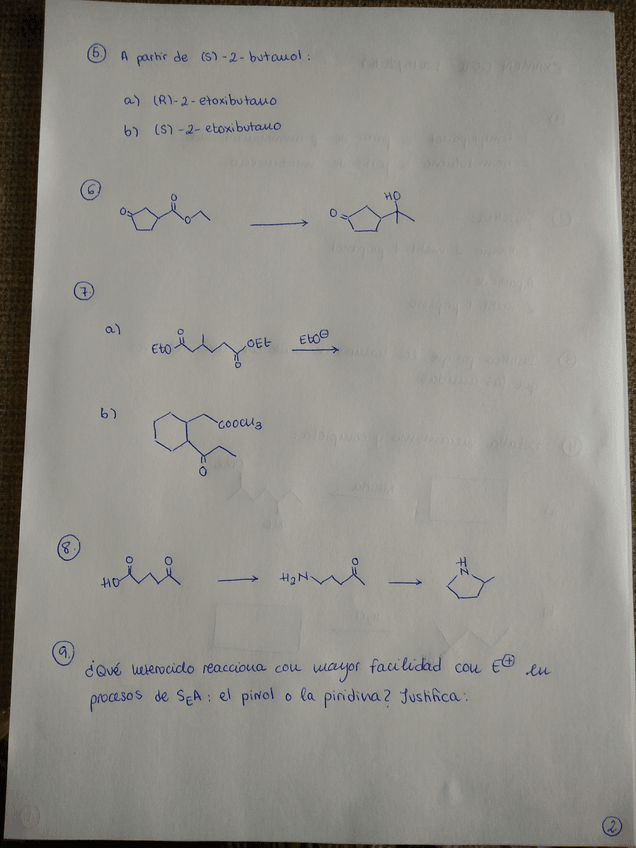 5. A partir de (S)-2-butanol:
a) (R)-2-etoxibutano
b) (S)-2-etoxibutano
6
O O O HO O
7.
a) EtO O O OEt EtO⊖
b) COOCH3
O
8.
HO O O H2N O H N
9. ¿Qué heterociclo reacciona con mayor facilidad con E⊕ en
procesos de SEA: el pirrol o la piridina? Justifica:
2